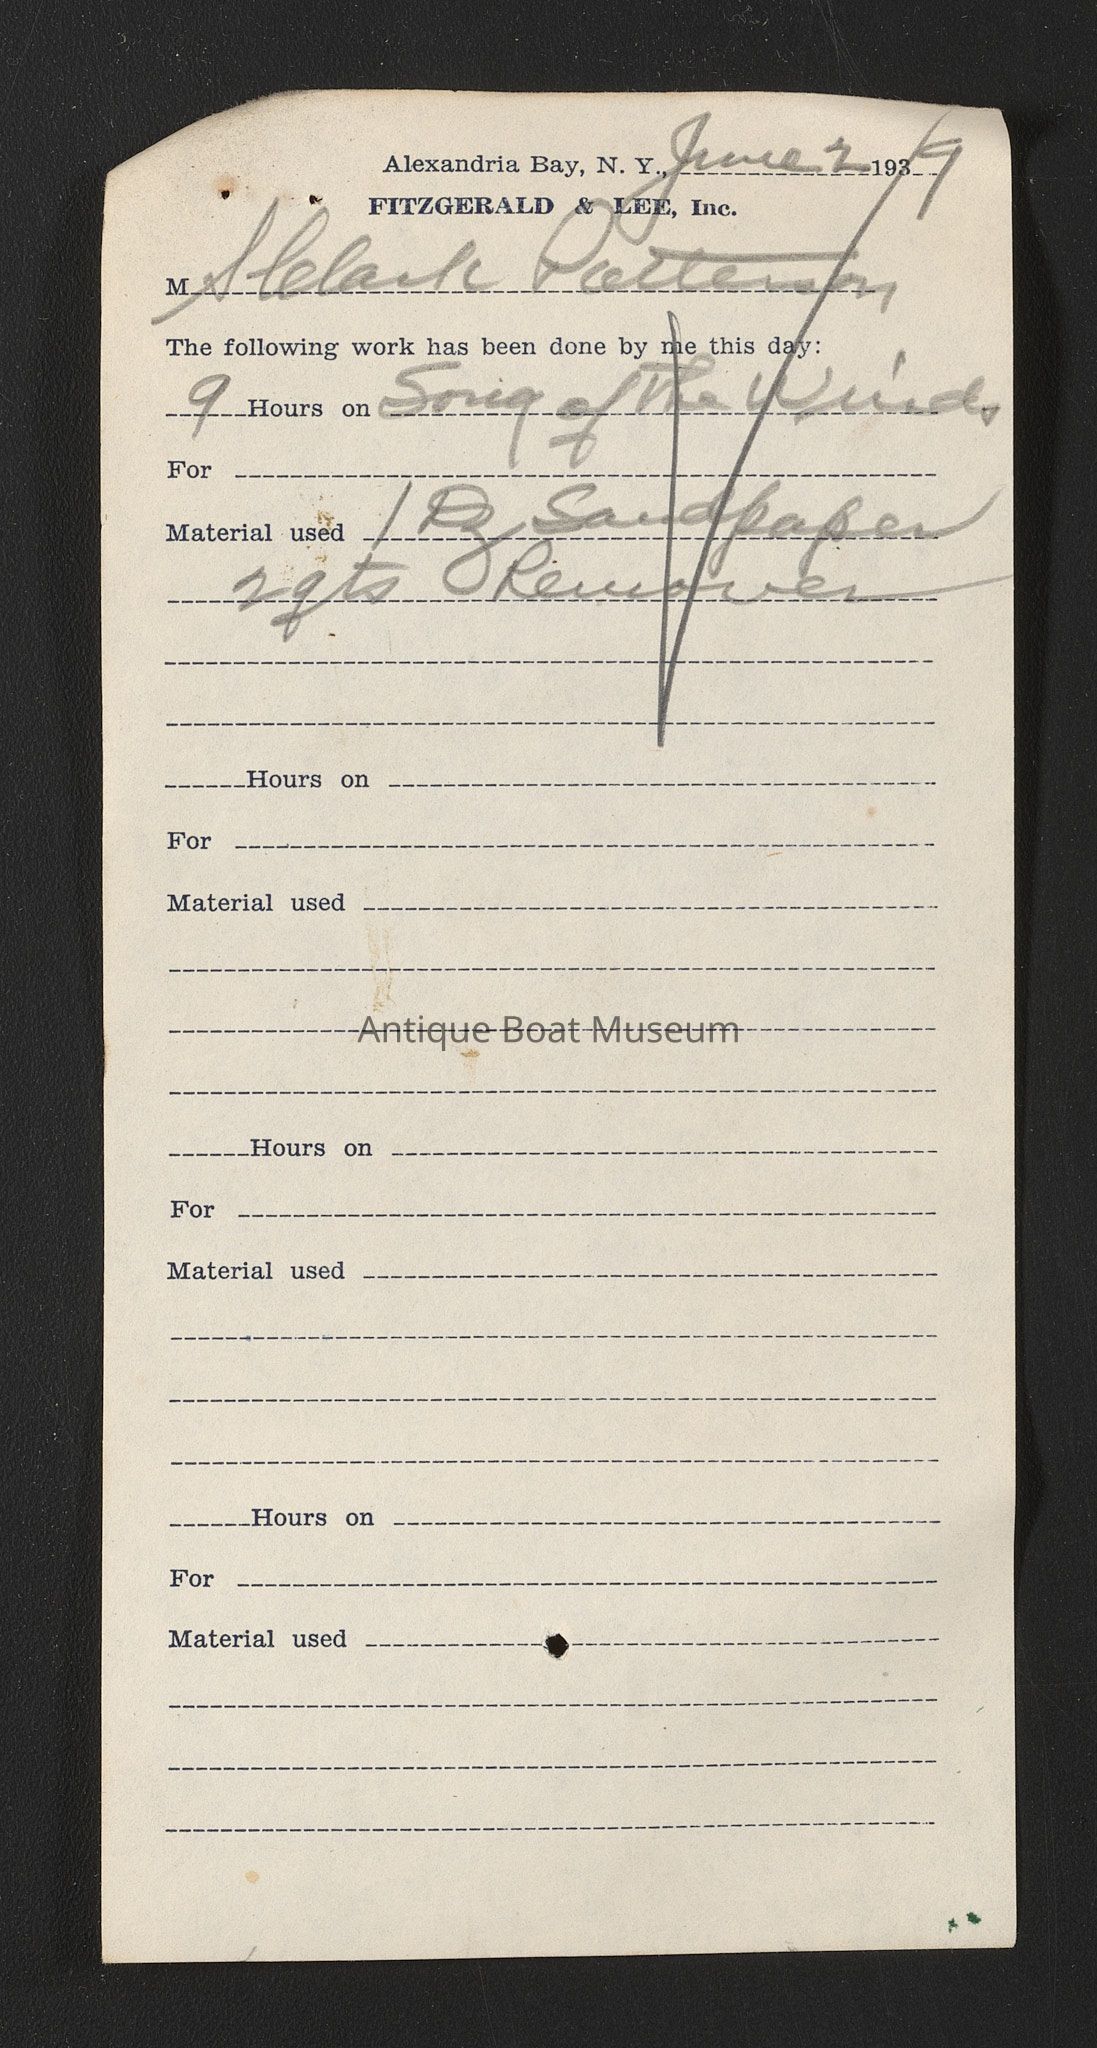 Alexandria Bay, N. Y., June 2 1939
FITZGERALD & LEE, Inc.
M Patterson
The following work has been done by me this day:
9 Hours on Song of The Winds
For
Material used 1 Dz Sandpaper
2 qts Remover
Hours on
For
Material used
Antique Boat Museum
Hours on
For
Material used
Hours on
For
Material used